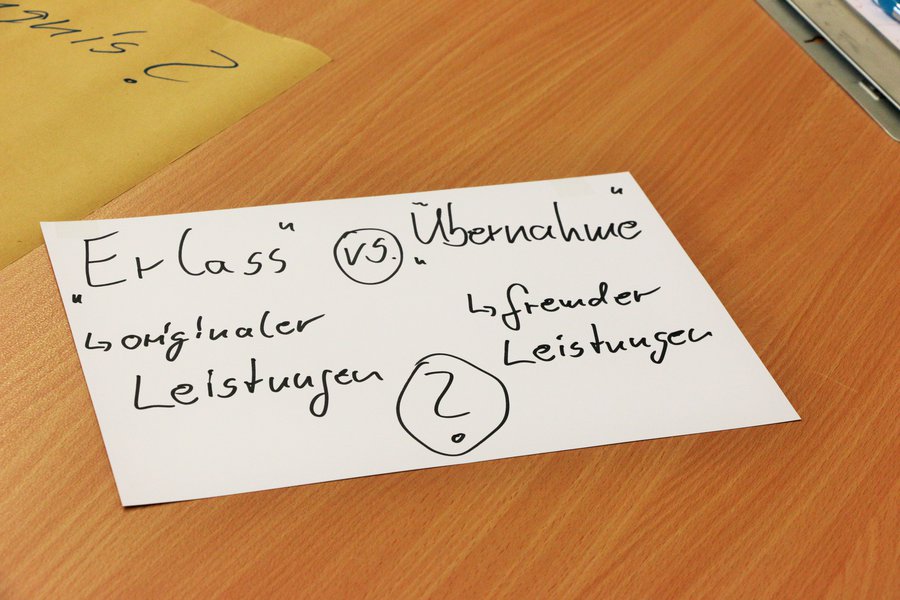 „Erlass“ vs. „Übernahme“
↳ originaler
Leistungen
↳ fremder
Leistungen
?